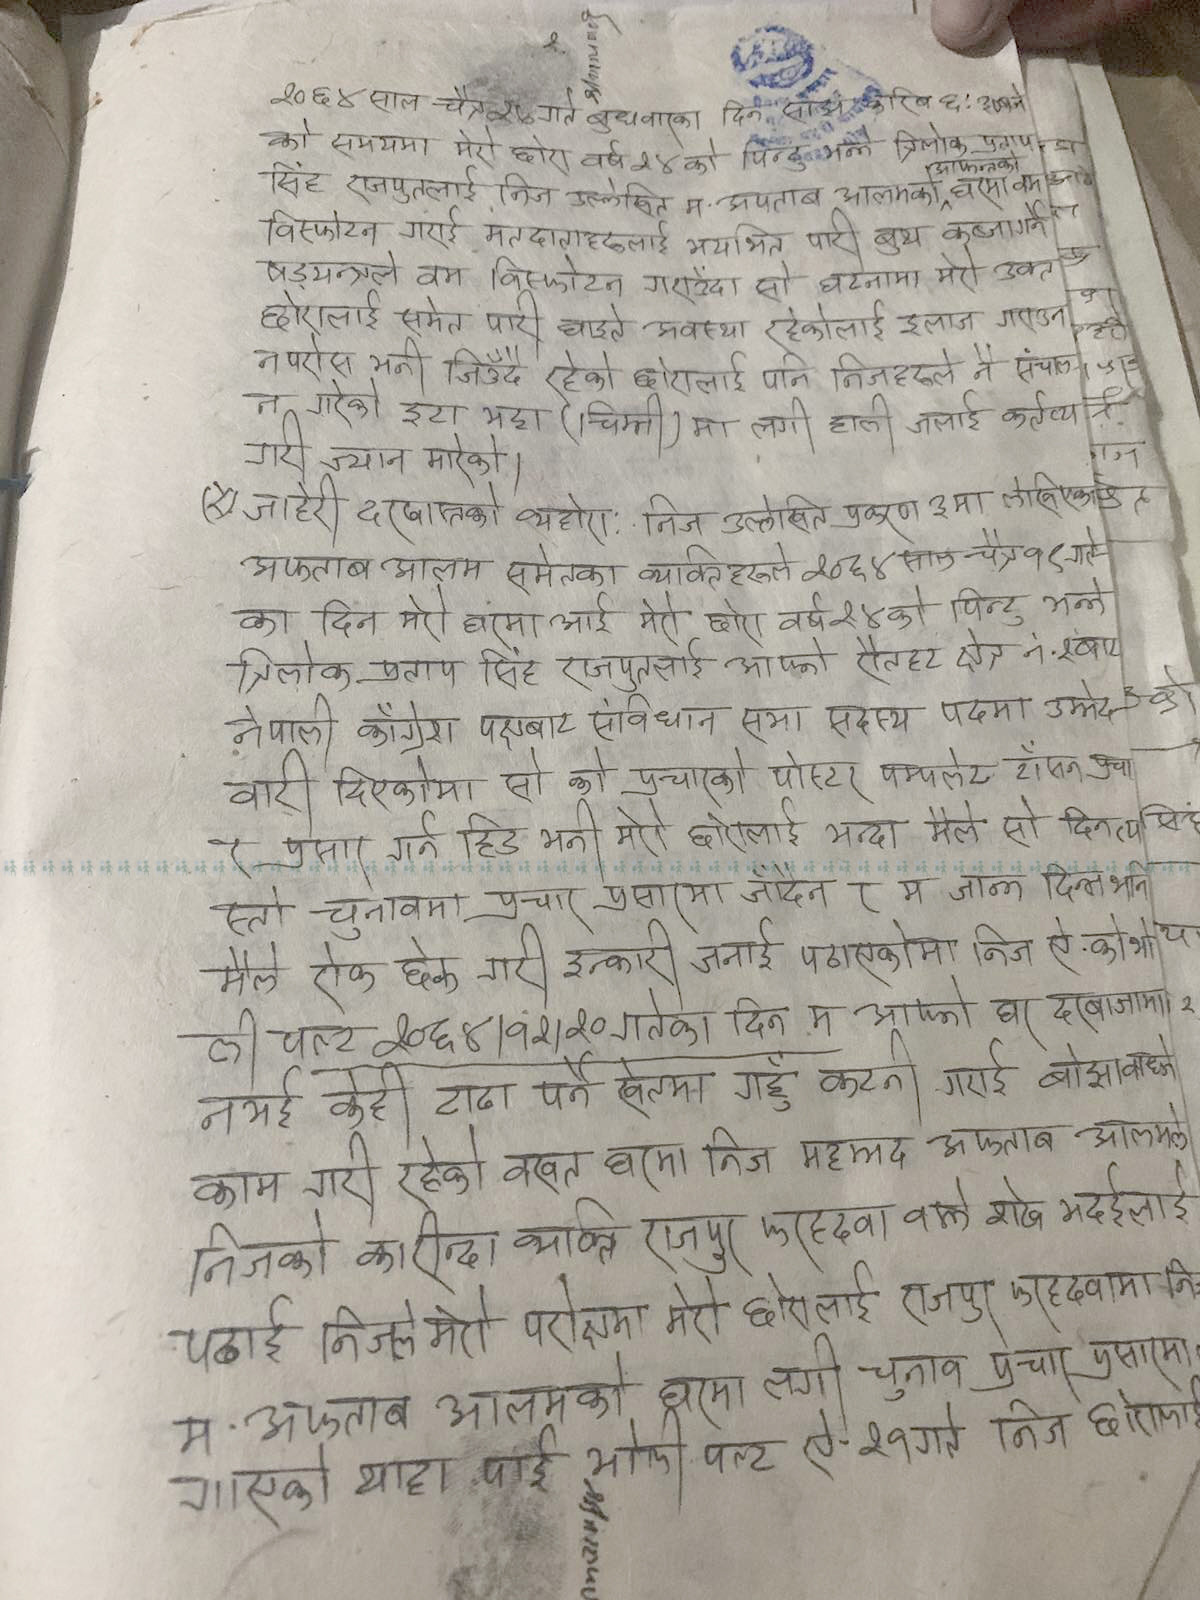 २.
२०६४ साल चैत्र २७ गते बुधवारका दिन साँझ करिब ६:
को समयमा मेरो छोरा वर्ष २४ को पिन्टु भन्ने त्रिलोक प्रताप
सिंह राजपुतलाई निज उल्लेखित म. अफताब आलमको आफन्तको घरमा वम
विस्फोटन गराई मतदाताहरुलाई भयभित पारी बुथ कब्जागर्ने
षडयन्त्रले वम विस्फोटन गराउँदा सो घटनामा मेरो उक्त
छोरालाई समेत पारी घाइते अवस्था रहेकोलाई इलाज गराउन
नपरोस भनी जिउँदै रहेको छोरालाई पनि निजहरुले नै संचाल
न गरेको इटा भट्टा (चिम्नी) मा लगी हाली जलाई कर्तव्य
गरी ज्यान मारेको।
जाहेरी दरखास्तको व्यहोरा: निज उल्लेखित प्रकरण ३ मा लेखिएका
अफताब आलम समेतका व्यक्तिहरुले २०६४ साल चैत्र १९ गते
का दिन मेरो घरमा आई मेरो छोरा वर्ष २४ को पिन्टु भन्ने
त्रिलोक प्रताप सिंह राजपुतलाई आफ्नो रौतहट क्षेत्र नं. २ बाट
नेपाली काँग्रेश पक्षबाट संविधान सभा सदस्य पदमा उम्मेद
वारी दिएकोमा सो को प्रचारको पोस्टर पम्पलेट टाँसन प्रचा
र प्रसार गर्न हिड भनी मेरो छोरालाई भन्दा मैले सो दिन त्य
स्तो चुनावमा प्रचार प्रसारमा जाँदैन र म जान्न दिन्न भनि
मैले रोक छेक गरी इन्कारी जनाई पठाएकोमा निज ऐ. को भो
ली पल्ट २०६४।१२।२० गतेका दिन म आफ्नो घर दरबाजामा
नभई केही टाढा पर्ने खेतमा गहुँ कटनी गराई बोझा वाध्ने
काम गरी रहेको वखत घरमा निज महम्मद अफताब आलमले
निजको कारीन्दा व्यक्ति राजपुर फरहदवा वस्ने शेख भदईलाई
पठाई निजले मेरो परोक्षमा मेरो छोरालाई राजपुर फरहदवामा
म. अफताब आलमको घरमा लगी चुनाव प्रचार प्रसारमा
गाएको थाहा पाई भोली पल्ट ऐ. २१ गते निज छोरालाई